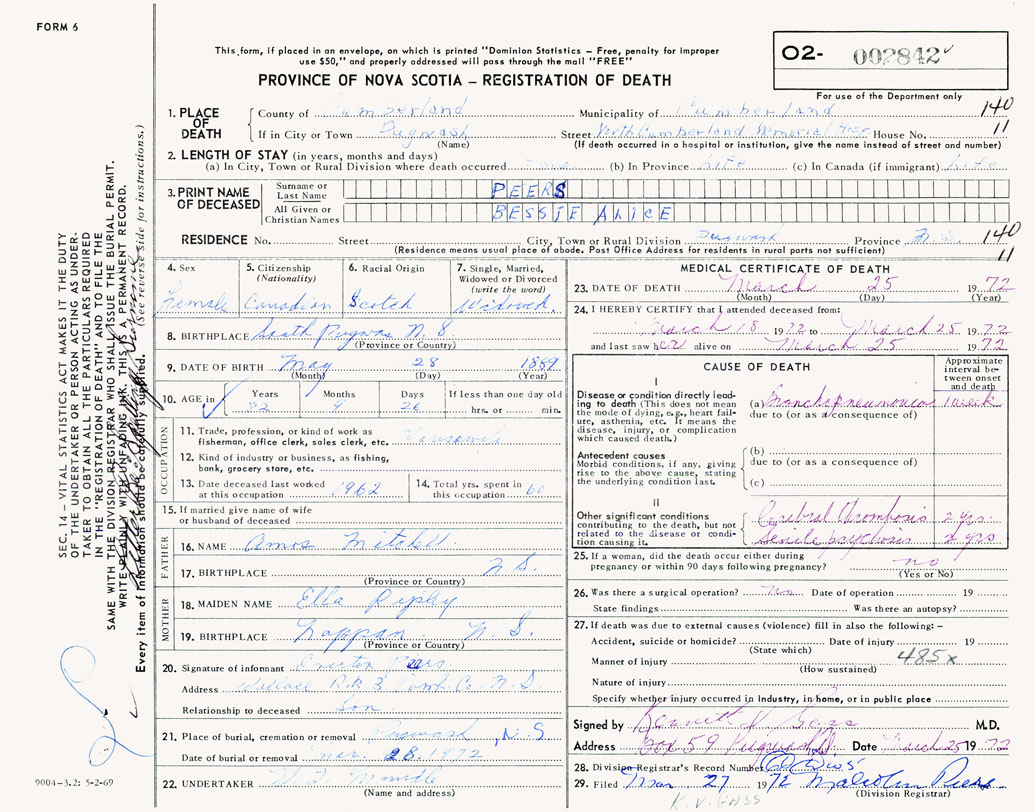 FORM 6
This form, if placed in an envelope, on which is printed "Dominion Statistics – Free, penalty for improper
use $50," and properly addressed will pass through the mail "FREE"
PROVINCE OF NOVA SCOTIA – REGISTRATION OF DEATH
O2- 002842
For use of the Department only
140
11
1. PLACE OF DEATH
County of Cumberland Municipality of Cumberland
If in City or Town Pugwash Street North Cumberland Memorial Hosp House No.
(Name) (If death occurred in a hospital or institution, give the name instead of street and number)
2. LENGTH OF STAY (in years, months and days)
(a) In City, Town or Rural Division where death occurred (b) In Province Life (c) In Canada (if immigrant) Life
3. PRINT NAME OF DECEASED
Surname or Last Name PEERS
All Given or Christian Names BESSIE ALICE
RESIDENCE No. Street City, Town or Rural Division Pugwash Province N.S. 140
(Residence means usual place of abode. Post Office Address for residents in rural parts not sufficient) 11
4. Sex
Female
5. Citizenship (Nationality)
Canadian
6. Racial Origin
Scotch
7. Single, Married, Widowed or Divorced (write the word)
Widowed
8. BIRTHPLACE South Pugwash N.S.
(Province or Country)
9. DATE OF BIRTH May 28 1889
(Month) (Day) (Year)
10. AGE in Years Months Days If less than one day old
82 9 26 hrs. or min.
OCCUPATION
11. Trade, profession, or kind of work as
fisherman, office clerk, sales clerk, etc. Housewife
12. Kind of industry or business, as fishing,
bank, grocery store, etc.
13. Date deceased last worked at this occupation 1962
14. Total yrs. spent in this occupation 60
15. If married give name of wife
or husband of deceased
FATHER
16. NAME Amos Mitchell
17. BIRTHPLACE N.S.
(Province or Country)
MOTHER
18. MAIDEN NAME Ella Ripley
19. BIRTHPLACE Nappan N.S.
(Province or Country)
20. Signature of informant Peers
Address Wallace R.R.3 Cumb. Co. N.S
Relationship to deceased Son
21. Place of burial, cremation or removal Pugwash, N.S
Date of burial or removal Mar 28 1972
22. UNDERTAKER
(Name and address)
MEDICAL CERTIFICATE OF DEATH
23. DATE OF DEATH March 25 1972
(Month) (Day) (Year)
24. I HEREBY CERTIFY that I attended deceased from:
March 18 1972 to March 25 1972
and last saw her alive on March 25 1972
CAUSE OF DEATH
Approximate interval between onset and death
I
Disease or condition directly leading to death (This does not mean the mode of dying, e.g., heart failure, asthenia, etc. It means the disease, injury, or complication which caused death.)
(a) Bronchopneumonia 1 week
due to (or as a consequence of)
Antecedent causes
Morbid conditions, if any, giving rise to the above cause, stating the underlying condition last.
(b)
due to (or as a consequence of)
(c)
II
Other significant conditions
contributing to the death, but not related to the disease or condition causing it.
Cerebral thrombosis 2 yrs.
Senile psychosis 2 yrs
25. If a woman, did the death occur either during
pregnancy or within 90 days following pregnancy? no
(Yes or No)
26. Was there a surgical operation? No Date of operation 19
State findings Was there an autopsy?
27. If death was due to external causes (violence) fill in also the following: –
Accident, suicide or homicide? Date of injury 19
(State which)
Manner of injury 485x
(How sustained)
Nature of injury
Specify whether injury occurred in industry, in home, or in public place
Signed by Kenneth V Gass M.D.
Address Box 59 Pugwash Date March 25 1972
28. Division Registrar's Record Number
29. Filed Mar 27 1972 Malcolm Peers
(Division Registrar)
K.V. GASS
SEC. 14 – VITAL STATISTICS ACT MAKES IT THE DUTY
OF THE UNDERTAKER OR PERSON ACTING AS UNDER-
TAKER TO OBTAIN ALL THE PARTICULARS REQUIRED
IN THE "REGISTRATION OF DEATH" AND TO FILE THE
SAME WITH THE DIVISION REGISTRAR WHO SHALL ISSUE THE BURIAL PERMIT.
WRITE PLAINLY WITH UNFADING INK. THIS IS A PERMANENT RECORD.
Every item of information should be carefully supplied. (See reverse side for instructions.)
9004-3.2: 5-2-69